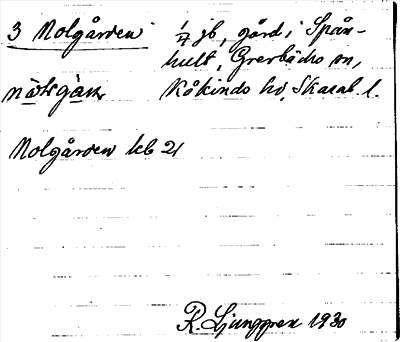 3 Nolgården 1/4 jb, gård i Spån-
hult, Grevbäcks sn,
Kåkinds hd, Skarab. l.
Nolgården kb 21
R. Ljunggren 1930